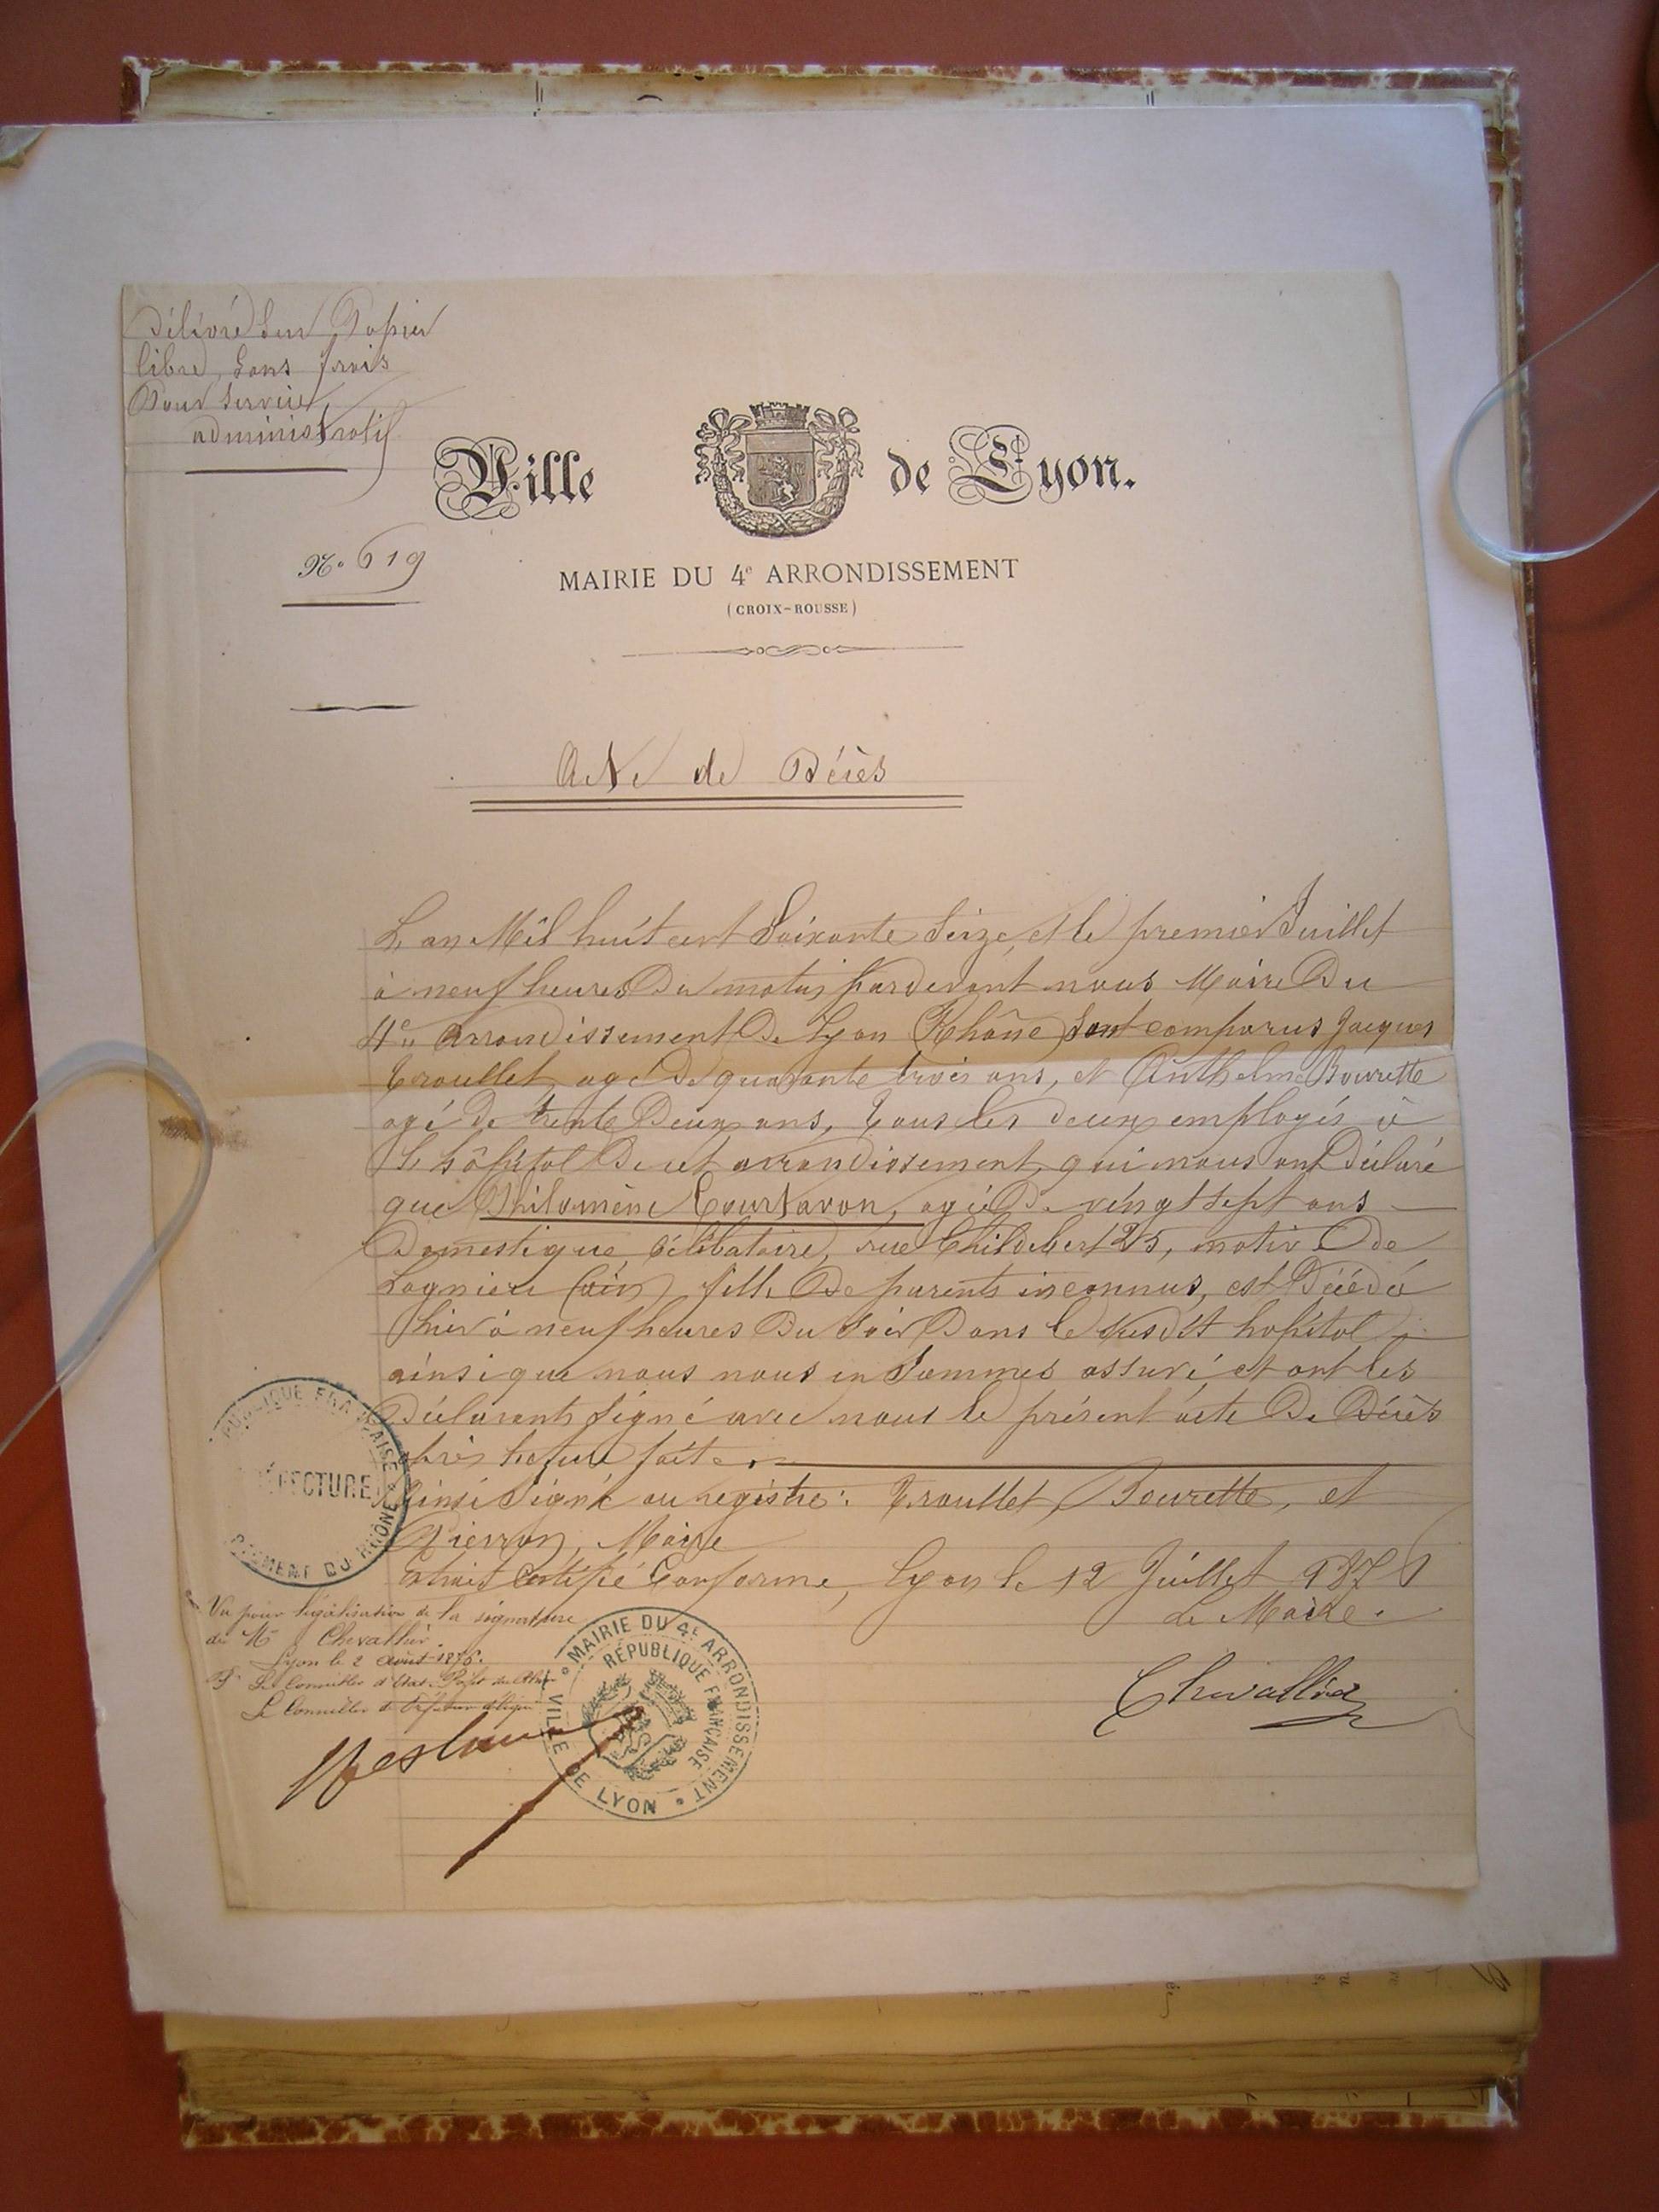 Délivré sur Papier
libre, sans frais
Pour service
administratif
Ville de Lyon.
N° 619
MAIRIE DU 4e ARRONDISSEMENT
(CROIX-ROUSSE)
Acte de Décès
L'an Mil huit cent Soixante Seize, et le premier Juillet
à neuf heures du matin pardevant nous Maire du
4e arrondissement de Lyon (Rhône) sont comparus Jacques
Troullet, agé de quarante trois ans, et Anthelme Bourette
agé de trente Deux ans, tous les deux employés à
l'hôpital de cet arrondissement, qui nous ont Déclaré
que Philomène Courtavon, agée de vingt sept ans
Domestique, célibataire, rue Childebert 25, native de
Lagnieu (ain) fille de parents inconnus, est Décédé
hier à neuf heures du soir Dans le susdit hopital
ainsi que nous nous en sommes assuré, et ont les
Déclarants signé avec nous le présent acte de Décès
après lecture faite.
Ainsi signé au registre: Troullet, Bourette, et
Pierron, Maire
Extrait Certifié Conforme, Lyon le 12 Juillet 1876
Le Maire.
Chevallier
PUBLIQUE FRANÇAISE
ÉFECTURE
EMENT DU RHÔNE
Vu pour légalisation de la signature
de Mr Chevallier
Lyon le 2 aout 1876.
Pr Le Conseiller d'Etat Préfet du Rhône
Le Conseiller de Préfecture délégué
MAIRIE DU 4E ARRONDISSEMENT
VILLE DE LYON
RÉPUBLIQUE FRANÇAISE